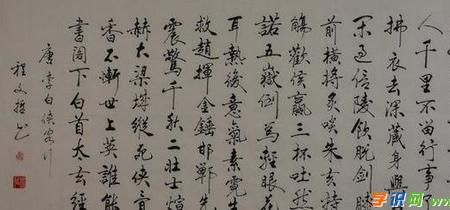 人千里不留行事了
拂衣去深藏身與
閑過信陵飲脫劍膝
前橫將炙啖朱亥持
觴勸侯嬴三杯吐然
諾五嶽倒為輕眼花
耳熱後意氣素霓生
救趙揮金鎚邯鄲先
震驚千秋二壯士烜
赫大梁城縱死俠骨
香不慚世上英誰能
書閣下白首太玄經
唐李白俠客行
程文哲
学识网